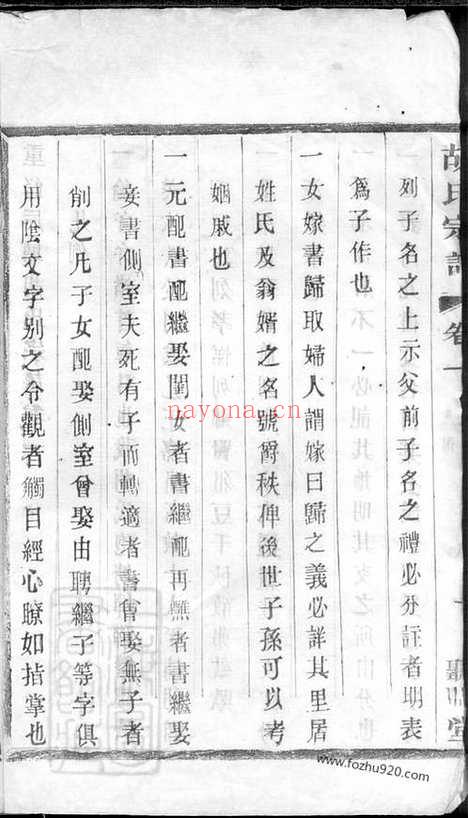 胡氏宗譜 卷一
一列子名之上示父前子名之禮必分註者明表
爲子作也
一女嫁書歸取婦人謂嫁曰歸之義必詳其里居
姓氏及翁婿之名號爵秩俾後世子孫可以考
姻戚也
一元配書配繼娶閨女者書繼配再醮者書繼娶
妾書側室夫死有子而轉適者書曾娶無子者
削之凡子女配娶側室曾娶由聘繼子等字俱
用陰文字別之令觀者觸目經心瞭如指掌也
nayona.cn
www.fozhu920.com